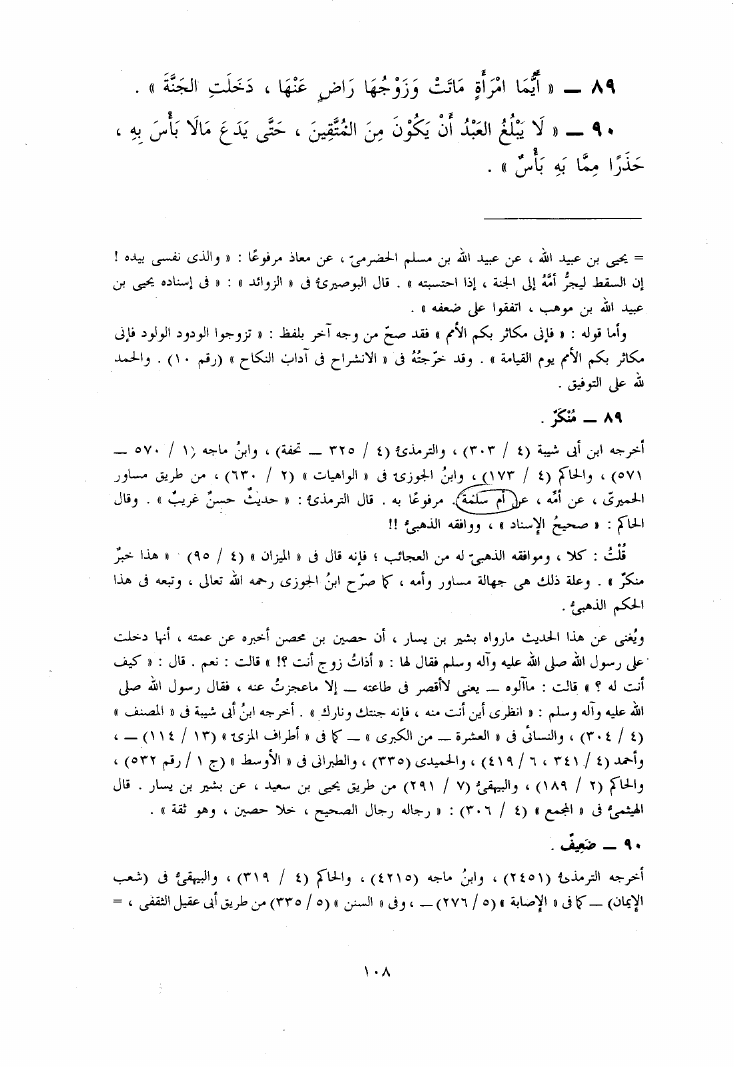 ٨٩ ــ « أَيُّمَا امْرَأَةٍ مَاتَتْ وَزَوْجُهَا رَاضٍ عَنْهَا ، دَخَلَتِ الجَنَّةَ » .
٩٠ ــ « لَا يَبْلُغُ العَبْدُ أَنْ يَكُونَ مِنَ المُتَّقِينَ ، حَتَّى يَدَعَ مَالَا بَأْسَ بِهِ ،
حَذَرًا مِمَّا بَهِ بَأْسٌ » .
= يحيى بن عبيد الله ، عن عبيد الله بن مسلم الحضرمىّ ، عن معاذ مرفوعًا : « والذى نفسى بيده !
إن السقط ليجرُّ أمَّهُ إلى الجنة ، إذا احتسبته » . قال البوصيرىُّ فى « الزوائد » : « فى إسناده يحيى بن
عبيد الله بن موهب ، اتفقوا على ضعفه » .
وأما قوله : « فإنى مكاثر بكم الأمم » فقد صحّ من وجه آخر بلفظ : « تزوجوا الودود الولود فإنى
مكاثر بكم الأمم يوم القيامة » . وقد خرّجتُهُ فى « الانشراح فى آداب النكاح » (رقم ١٠) . والحمد
لله على التوفيق .
٨٩ ــ مُنْكَرٌ .
أخرجه ابن أبى شيبة (٤ / ٣٠٣) ، والترمذىُّ (٤ / ٣٢٥ ــ تحفة) ، وابنُ ماجه (١ / ٥٧٠ ــ
٥٧١) ، والحاكم (٤ / ١٧٣) ، وابنُ الجوزى فى « الواهيات » (٢ / ٦٣٠) ، من طريق مساور
الحميرىّ ، عن أمِّه ، عن أم سلمة ، مرفوعًا به . قال الترمذىُّ : « حديثٌ حسنٌ غريبٌ » . وقال
الحاكم : « صحيحُ الإسناد » ، ووافقه الذهبىُّ !!
قُلْتُ : كلا ، وموافقه الذهبىّ له من العجائب ؛ فإنه قال فى « الميزان » (٤ / ٩٥) « هذا خبرٌ
منكرٌ » . وعلة ذلك هى جهالة مساور وأمه ، كما صرّح ابنُ الجوزى رحمه الله تعالى ، وتبعه فى هذا
الحكم الذهبىُّ .
ويُغنى عن هذا الحديث مارواه بشير بن يسار ، أن حصين بن محصن أخبره عن عمته ، أنها دخلت
على رسول الله صلى الله عليه وآله وسلم فقال لها : « أذاتُ زوج أنت ؟! » قالت : نعم . قال : « كيف
أنت له ؟ » قالت : ماآلوه ــ يعنى لاأقصر فى طاعته ــ إلا ماعجزتُ عنه ، فقال رسول الله صلى
الله عليه وآله وسلم : « انظرى أين أنت منه ، فإنه جنتك ونارك » . أخرجه ابنُ أبى شيبة فى « المصنف »
(٤ / ٣٠٤) ، والنسائىُّ فى « العشرة ــ من الكبرى » ــ كما فى « أطراف المزىّ » (١٣ / ١١٤) ــ ،
وأحمد (٤ / ٣٤١ ، ٦ / ٤١٩) ، والحميدى (٣٣٥) ، والطبرانى فى « الأوسط » (ج ١ / رقم ٥٣٢) ،
والحاكم (٢ / ١٨٩) ، والبيهقىُّ (٧ / ٢٩١) من طريق يحيى بن سعيد ، عن بشير بن يسار . قال
الهيثمىُّ فى « المجمع » (٤ / ٣٠٦) : « رجاله رجال الصحيح ، خلا حصين ، وهو ثقة » .
٩٠ ــ ضَعِيفٌ .
أخرجه الترمذىُّ (٢٤٥١) ، وابنُ ماجه (٤٢١٥) ، والحاكم (٤ / ٣١٩) ، والبيهقىُّ فى (شعب
الإيمان) ــ كما فى « الإصابة » (٥ / ٢٧٦) ــ ، وفى « السنن » (٥ / ٣٣٥) من طريق أبى عقيل الثقفى ، =
١٠٨